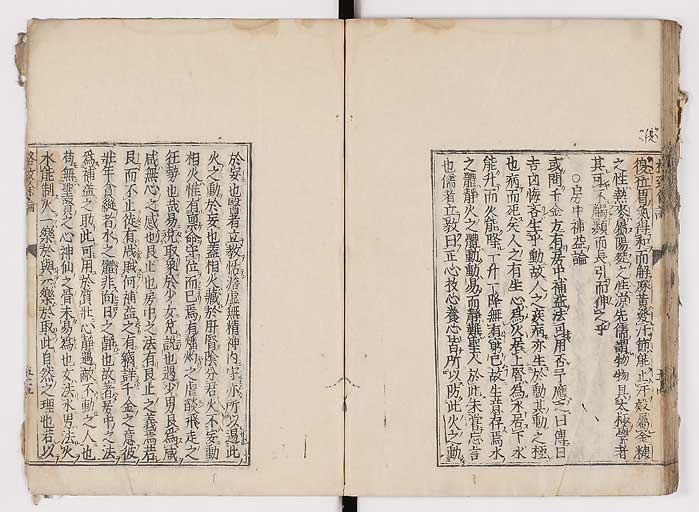 復泣胃氣得和而解麻黃發汗節能止汗穀屬金糠
之性熱麥屬陽麩之性涼先儒謂物物具太極學者
其可不觸類而長引而伸之乎
○房中補益論
或問千金方有房中補益法可用否予應之曰傳曰
吉凶悔吝生乎動故人之疾病亦生於動其動之極
也病而死矣人之有生心為火居上腎為水居下水
能升而火能降一升一降無有窮已故生意存焉水
之體靜火之體動動易而靜難聖人於此未嘗忘言
也儒者立教曰正心收心養心皆所以防此火之動
於妄也醫者立教恬澹虛無精神內守亦所以遏此
火之動於妄也蓋相火藏於肝腎陰分君火不妄動
相火惟有稟命守位而已焉有燔灼之虐焰飛走之
狂勢也哉易兌取象於少女兌說也遇少男艮為咸
咸無心之感也艮止也房中之法有艮止之義焉若
艮而不止徒有戕賊何補益之有竊詳千金之意彼
壯年貪縱者水之體非向日之靜也故著房中之法
為補益之助此可用於質壯心靜遇敵不動之人也
苟無聖賢之心神仙之骨未易為也女法水男法火
水能制火一樂於與一樂於取此自然之理也若以
格致餘論